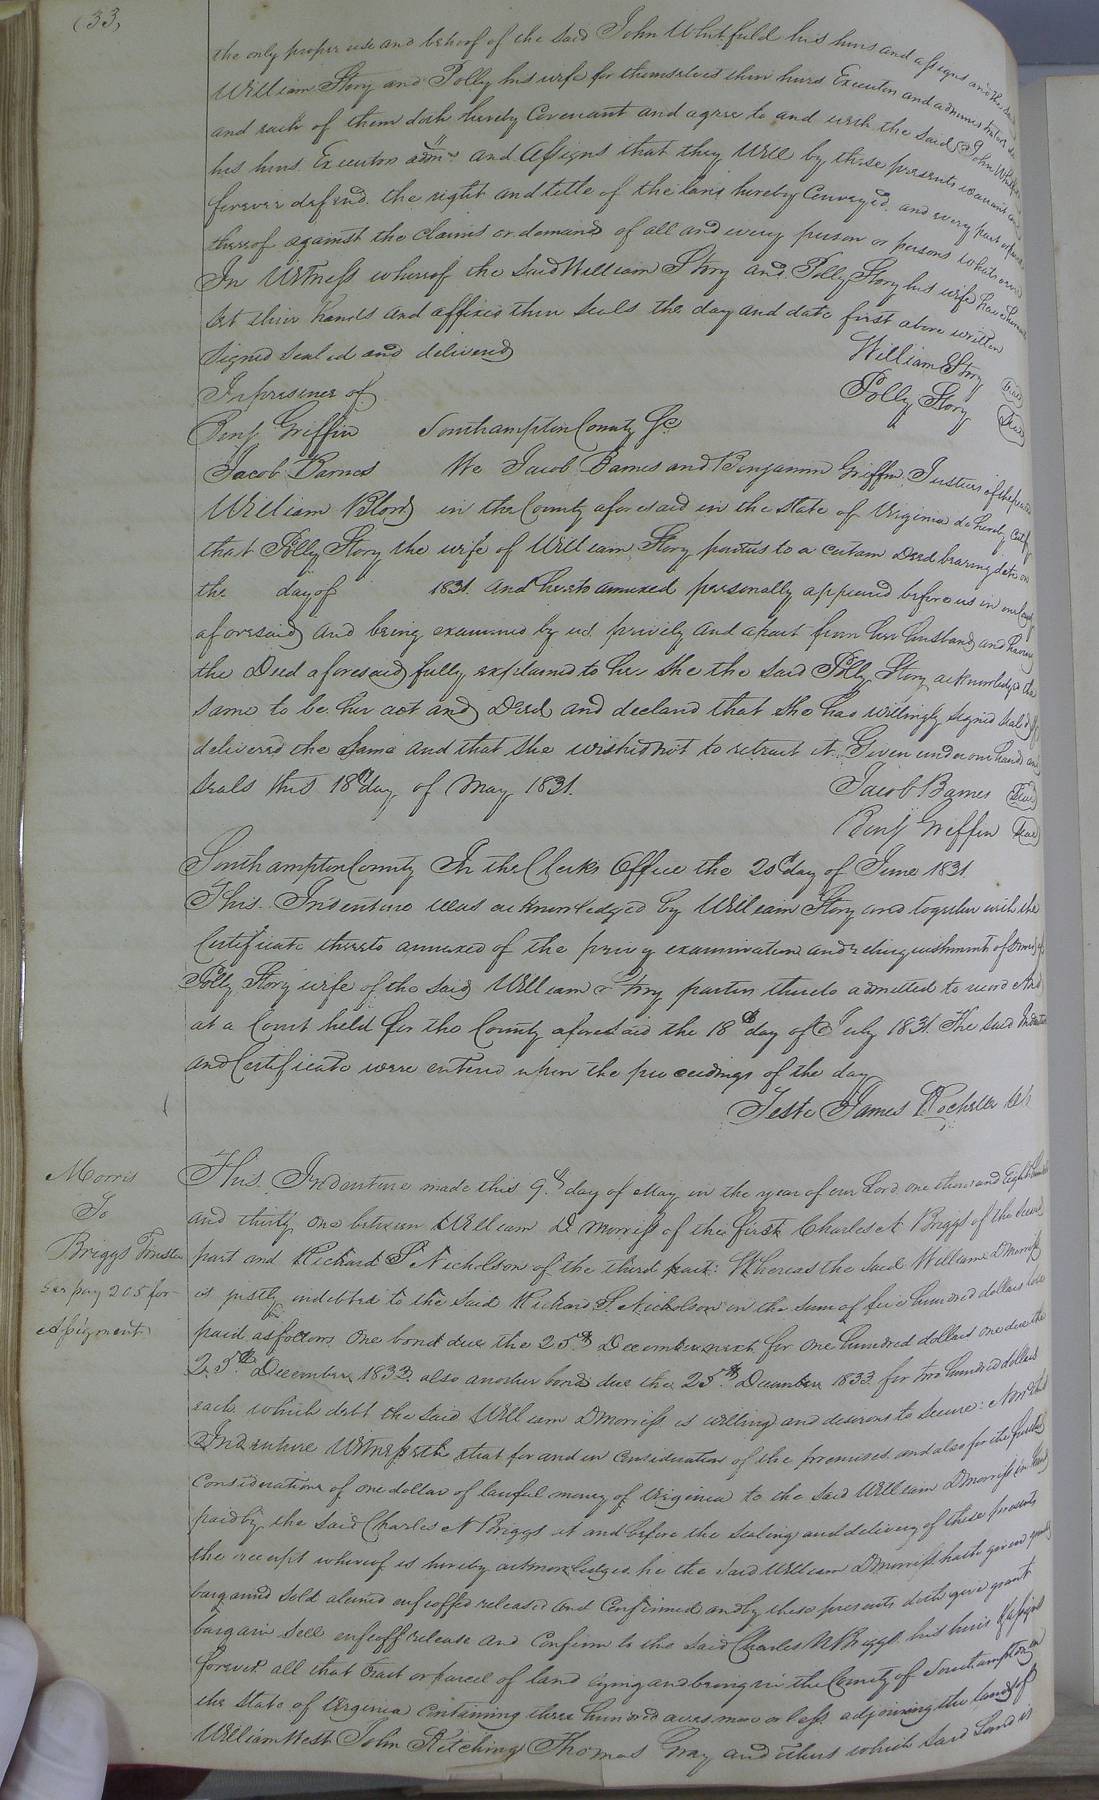 (33)
the only proper use and behoof of the said John Whitfield his heirs and assigns and the said
William Story and Polly his wife for themselves their heirs Executors and administrators do
and each of them doth hereby Covenant and agree to and with the said John Whitfield
his heirs Executors admrs and Assigns that they Will by these presents warrant and
forever defend the right and title of the land hereby Conveyed and every part or parcel
thereof against the claims or demands of all and every person or persons whatsoever
In Witness whereof the said William Story and Polly Story his wife have hereunto
set their hands and affixed their seals the day and date first above written
Signed sealed and delivered
William Story Seal
In presence of
Polly Story Seal
Benj Griffin Southampton County Sc
Jacob Barnes We Jacob Barnes and Benjamin Griffin Justices of the peace
William in the County aforesaid in the state of Virginia do hereby Certify
that Polly Story the wife of William Story parties to a certain Deed bearing date on
the day of 1831 and hereto annexed personally appeared before us in our County
aforesaid and being examined by us privily and apart from her husband and having
the Deed aforesaid fully explained to her she the said Polly Story acknowledged the
same to be her act and Deed and declared that she had willingly signed sealed &
delivered the same and that she wished not to retract it Given under our hands and
seals this 18th day of May 1831.
Jacob Barnes Seal
Benj Griffin Seal
Southampton County In the Clerks Office the 20th day of June 1831
This Indenture was acknowledged by William Story and together with the
Certificate thereto annexed of the privy examination and relinquishment of Dower of
Polly Story wife of the said William Story parties thereto admitted to record And
at a Court held for the County aforesaid the 18th day of July 1831. The said Indenture
and Certificate were entered upon the proceedings of the day
Teste James Rochelle Clk
Morris
To
Briggs Trustee
pay 205 for
Assigment
This Indenture made this 9th day of May in the year of our Lord one thousand Eight hundred
and thirty one between William D Morriss of the first Charles A Briggs of the second
part and Richard S Nicholson of the third part: Whereas the said William D Morriss
is justly indebted to the said Richard S. Nicholson in the sum of five hundred dollars to be
paid as follows One bond due the 25th December next for one hundred dollars one due the
25th December 1832 also another bond due the 25th December 1833 for two hundred dollars
each which debt the said William D Morriss is willing and desirous to secure: Now this
Indenture Witnesseth that for and in consideration of the premises and also for the further
Consideration of one dollar of lawful money of Virginia to the said William D Morriss in hand
paid by the said Charles A Briggs at and before the sealing and delivery of these presents
the receipt whereof is hereby acknowledged he the said William D Morriss hath given granted
bargained sold aliened enfeoffed released and Confirmed and by these presents doth give grant
bargain sell enfeoff release and Confirm to the said Charles A Briggs his heirs & assigns
forever all that tract or parcel of land lying and being in the County of Southampton in
the State of Virginia Containing three hundred acres more or less adjoining the lands of
William West John Kitching Thomas Gray and others which said Land is